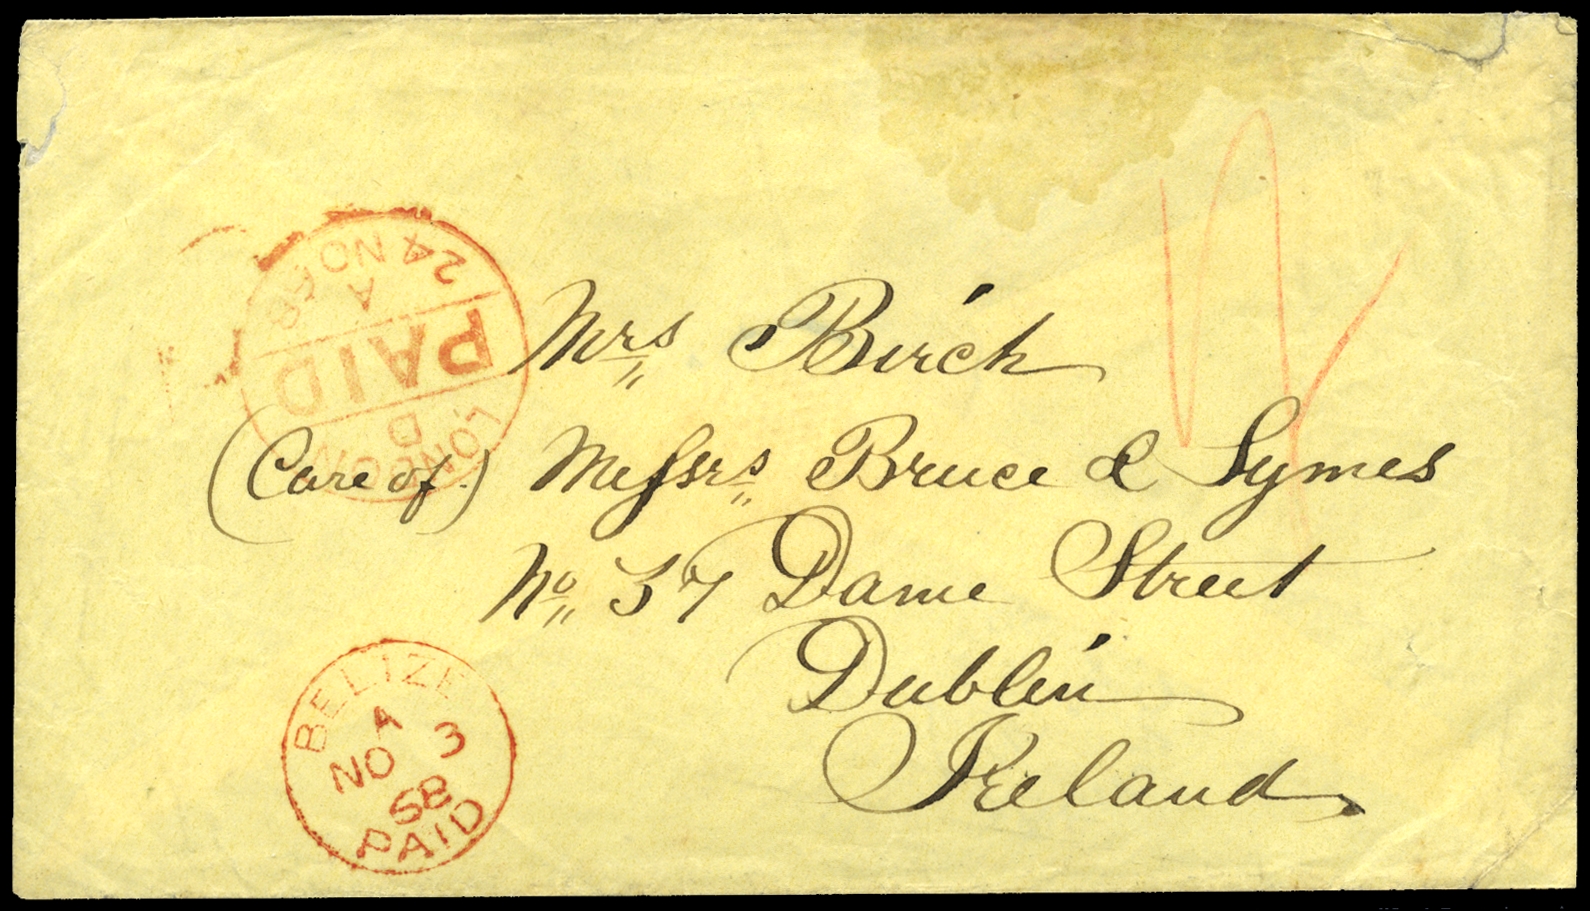 Mrs Birch
(Care of) Messrs Bruce & Symes
No 37 Dame Street
Dublin
Ireland
LONDON
D
PAID
A
24 NO 68
BELIZE
A
NO 3
68
PAID